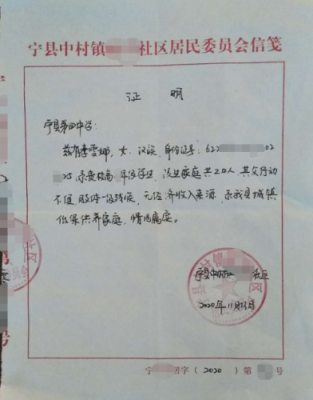 宁县中村镇 社区居民委员会信笺
证 明
宁县第四中学:
兹有李雪娜, 女, 汉族, 身份证号: 622
25 系 年级学生, 该生家庭共2口人, 其父行动
不便 肢体一级残疾, 无经济收入来源, 系我县城镇
低保供养家庭, 情况属实。
宁县中村 社区
2020年11月 日
宁 居字 ( 2020 ) 第 号